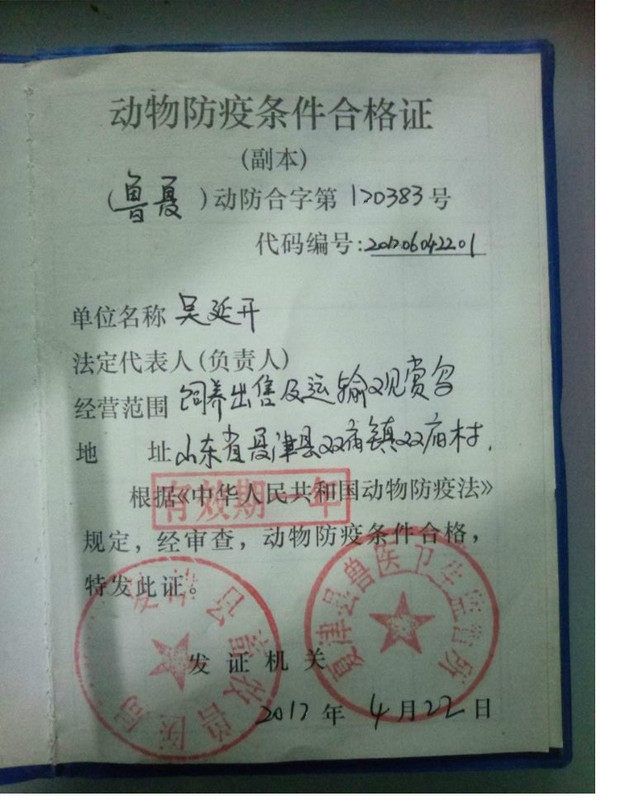 动物防疫条件合格证
(副本)
(鲁夏)动防合字第170383号
代码编号:201706042201
单位名称 吴延开
法定代表人(负责人)
经营范围 饲养出售及运输观赏鸟
地 址 山东省夏津县双庙镇双庙村.
有效期一年
根据《中华人民共和国动物防疫法》
规定，经审查，动物防疫条件合格，
特发此证。
夏津县畜牧兽医局
夏津县兽医卫生监督所
发证机关
2017年4月22日